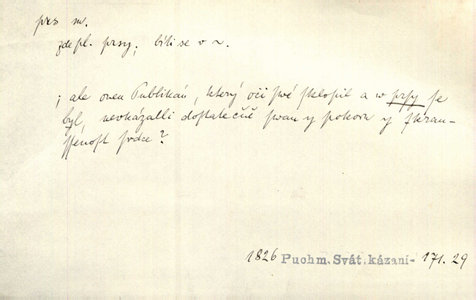 prs m.
zde pl. prsy; bíti se v ~.
; ale onen Publikán, který oči swé sklopil a w prsy se
byl, neokázalli dostatečně swau y pokoru y zkrau-
ssenost srdce?
1826 Puchm. Svát. kázaní- 171.29